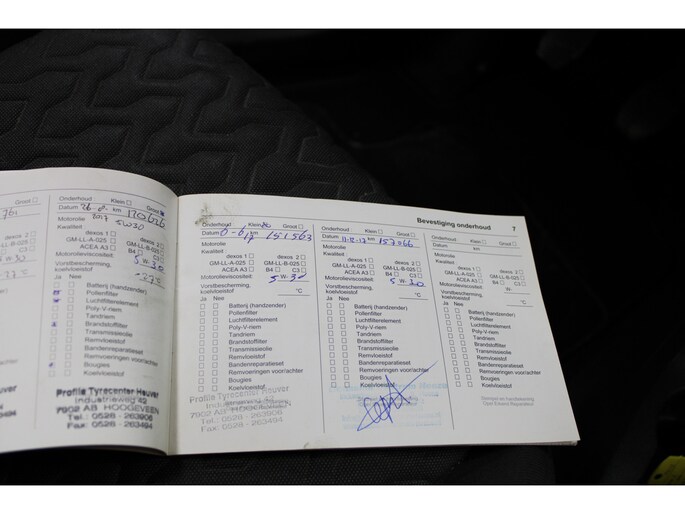 Bevestiging onderhoud 7
761
Groot
dexos 2
GM-LL-B-025
C3
Onderhoud Klein Groot
Datum km 170626
2017
Motorolie 5W30
Kwaliteit
dexos 1 dexos 2
GM-LL-A-025 GM-LL-B-025
ACEA A3 B4 C3
Motorolieviscositeit: 5 W- 30
Vorstbescherming,
koelvloeistof -27 °C
Ja Nee
Batterij (handzender)
Pollenfilter
Luchtfilterelement
Poly-V-riem
Tandriem
Brandstoffilter
Transmissieolie
Remvloeistof
Bandenreparatieset
Remvoeringen voor/achter
Bougies
Koelvloeistof
Profile Tyrecenter Heuver
Industrieweg 42
7902 AB HOOGEVEEN
Tel.: 0528 - 263906
Fax: 0528 - 263494
Onderhoud Klein Groot
Datum km 151563
17
Motorolie
Kwaliteit
dexos 1 dexos 2
GM-LL-A-025 GM-LL-B-025
ACEA A3 B4 C3
Motorolieviscositeit: 5 W- 30
Vorstbescherming,
koelvloeistof °C
Ja Nee
Batterij (handzender)
Pollenfilter
Luchtfilterelement
Poly-V-riem
Tandriem
Brandstoffilter
Transmissieolie
Remvloeistof
Bandenreparatieset
Remvoeringen voor/achter
Bougies
Koelvloeistof
Profile Tyrecenter Heuver
Industrieweg 42
7902 AB HOOGEVEEN
Tel.: 0528 - 263906
Fax: 0528 - 263494
Onderhoud Klein Groot
Datum 11-12-17 km 157066
Motorolie
Kwaliteit
dexos 1 dexos 2
GM-LL-A-025 GM-LL-B-025
ACEA A3 B4 C3
Motorolieviscositeit: 5 W- 30
Vorstbescherming,
koelvloeistof °C
Ja Nee
Batterij (handzender)
Pollenfilter
Luchtfilterelement
Poly-V-riem
Tandriem
Brandstoffilter
Transmissieolie
Remvloeistof
Bandenreparatieset
Remvoeringen voor/achter
Bougies
Koelvloeistof
Onderhoud Klein Groot
Datum km
Motorolie
Kwaliteit
dexos 1 dexos 2
GM-LL-A-025 GM-LL-B-025
ACEA A3 B4 C3
Motorolieviscositeit: W-
Vorstbescherming,
koelvloeistof °C
Ja Nee
Batterij (handzender)
Pollenfilter
Luchtfilterelement
Poly-V-riem
Tandriem
Brandstoffilter
Transmissieolie
Remvloeistof
Bandenreparatieset
Remvoeringen voor/achter
Bougies
Koelvloeistof
Stempel en handtekening
Opel Erkend Reparateur